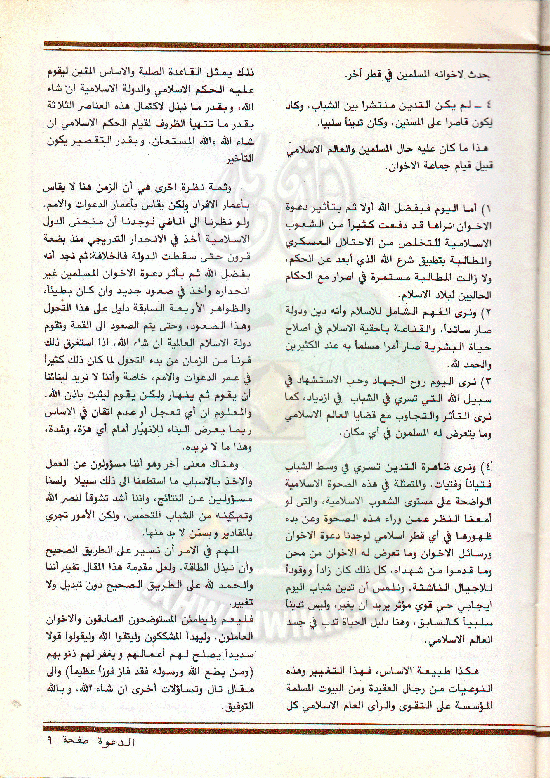 حدث لاخوانه المسلمين في قطر آخر.
٤ ــ لم يكن التدين منتشرا بين الشباب، وكاد
يكون قاصرا على المسنين، وكان تدينا سلبيا.
هذا ما كان عليه حال المسلمين والعالم الاسلامي
قبيل قيام جماعة الاخوان.
١) أما اليوم فبفضل الله أولا ثم بتأثير دعوة
الاخوان نراها قد دفعت كثيرا من الشعوب
الاسلامية للتخلص من الاحتلال العسكري
والمطالبة بتطبيق شرع الله الذي أبعد عن الحكم،
ولا زالت المطالبة مستمرة في اصرار مع الحكام
الحاليين لبلاد الاسلام.
٢) ونرى الفهم الشامل للاسلام وأنه دين ودولة
صار سائدا، والقناعة بأحقية الاسلام في اصلاح
حياة البشرية صار أمرا مسلما به عند الكثيرين
والحمد لله.
٣) نرى اليوم روح الجهاد وحب الاستشهاد في
سبيل الله التي تسري في الشباب في ازدياد، كما
نرى التأثر والتجاوب مع قضايا العالم الاسلامي
وما يتعرض له المسلمون في أي مكان.
٤) ونرى ظاهرة التدين تسري في وسط الشباب
فتيانا وفتيات، والمتمثلة في هذه الصحوة الاسلامية
الواضحة على مستوى الشعوب الاسلامية، والتي لو
أمعنا النظر عمن وراء هذه الصحوة وعن بدء
ظهورها في أي قطر اسلامي لوجدنا دعوة الاخوان
ورسائل الاخوان وما تعرض له الاخوان من محن
وما قدموا من شهداء، كل ذلك كان زادا ووقودا
للاجيال الناشئة، ونلمس أن تدين شباب اليوم
ايجابي حي قوي مؤثر يريد أن يغير، وليس تدينا
سلبيا كالسابق، وهنا دليل الحياة تدب في جسد
العالم الاسلامي.
هكذا طبيعة الاساس، فهذا التغيير وهذه
النوعيات من رجال العقيدة ومن البيوت المسلمة
المؤسسة على التقوى والرأى العام الاسلامي كل
ذلك يمثل القاعدة الصلبة والاساس المتين ليقوم
عليه الحكم الاسلامي والدولة الاسلامية ان شاء
الله، وبقدر ما نبذل لاكتمال هذه العناصر الثلاثة
بقدر ما تتهيأ الظروف لقيام الحكم الاسلامي ان
شاء الله والله المستعان. وبقدر التقصير يكون
التأخير
وثمة نظرة اخرى هي أن الزمن هنا لا يقاس
بأعمار الأفراد ولكن يقاس بأعمار الدعوات والامم.
ولو نظرنا الى الماضي لوجدنا أن منحنى الدول
الاسلامية أخذ في الانحدار التدريجي منذ بضعة
قرون حتى سقطت الدولة فالخلافة؛ ثم نجد أنه
بفضل الله ثم بأثر دعوة الاخوان المسلمين غير
انحداره وأخذ في صعود جديد وان كان بطيئا،
والظواهر الأربعة السابقة دليل على هذا التحول
وهذا الصعود، وحتى يتم الصعود الى القمة وتقوم
دولة الاسلام العالمية ان شاء الله، اذا استغرق ذلك
قرنا من الزمان من بدء التحول لما كان ذلك كثيرا
في عمر الدعوات والامم، خاصة وأننا لا نريد لبنائنا
أن يقوم ثم ينهار ولكن يقوم ليثبت باذن الله.
والمعلوم ان أي تعجل أو عدم اتقان في الاساس
ربما يعرض البناء للانهيار أمام أي هزة، وشدة،
وهذا ما لا نريده.
وهناك معنى آخر وهو أننا مسؤولون عن العمل
والاخذ بالاسباب ما استطعنا الى ذلك سبيلا ولسنا
مسؤولين عن النتائج، واننا أشد تشوقا لنصر الله
وتمكينه من الشباب المتحمس، ولكن الأمور تجري
بالمقادير وبسنن لا بد منها.
المهم في الامر أن نسير على الطريق الصحيح
وأن نبذل الطاقة. ولعل مقدمة هذا المقال تفيد أننا
والحمد لله على الطريق الصحيح دون تبديل ولا
تغيير.
فليعلم وليطمئن المستوضحون الصادقون والاخوان
العاملون. وليهدأ المشككون وليتقوا الله وليقولوا قولا
سديدا يصلح لهم أعمالهم ويغفر لهم ذنوبهم
(ومن يطع الله ورسوله فقد فاز فوزا عظيما) والى
مقال تال وتساؤلات أخرى ان شاء الله. وبالله
التوفيق.
الدعوة صفحة ٩